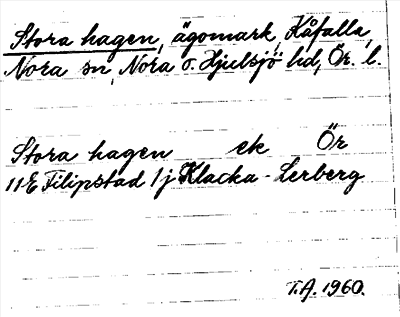 Stora hagen, ägomark, Kåfalla,
Nora sn, Nora o. Hjulsjö hd, Ör. l.
Stora hagen ek Ör
11E Filipstad 1j Klacka-Lerberg
T.A. 1960.